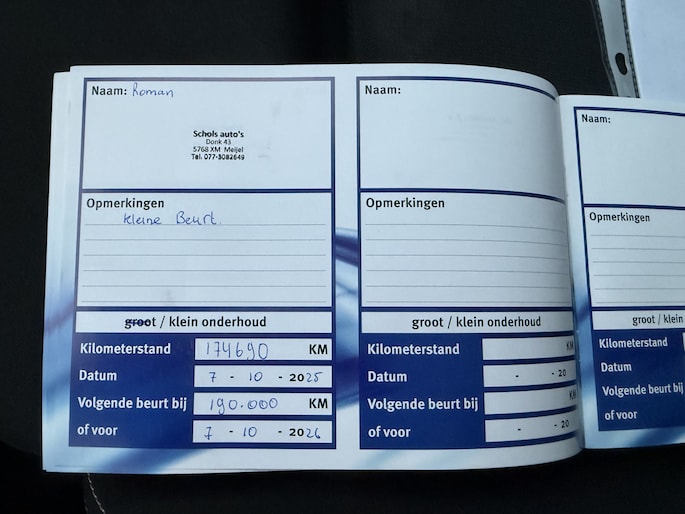 Naam: Roman
Schols auto's
Donk 43
5768 XM Meijel
Tel. 077-3082649
Opmerkingen
kleine Beurt.
groot / klein onderhoud
Kilometerstand 174690 KM
Datum 7 - 10 - 2025
Volgende beurt bij 190.000 KM
of voor 7 - 10 - 2026
Naam:
Opmerkingen
groot / klein onderhoud
Kilometerstand KM
Datum - - 20
Volgende beurt bij KM
of voor - - 20
Naam:
Opmerkingen
groot / klein
Kilometerstand
Datum
Volgende beurt bij
of voor